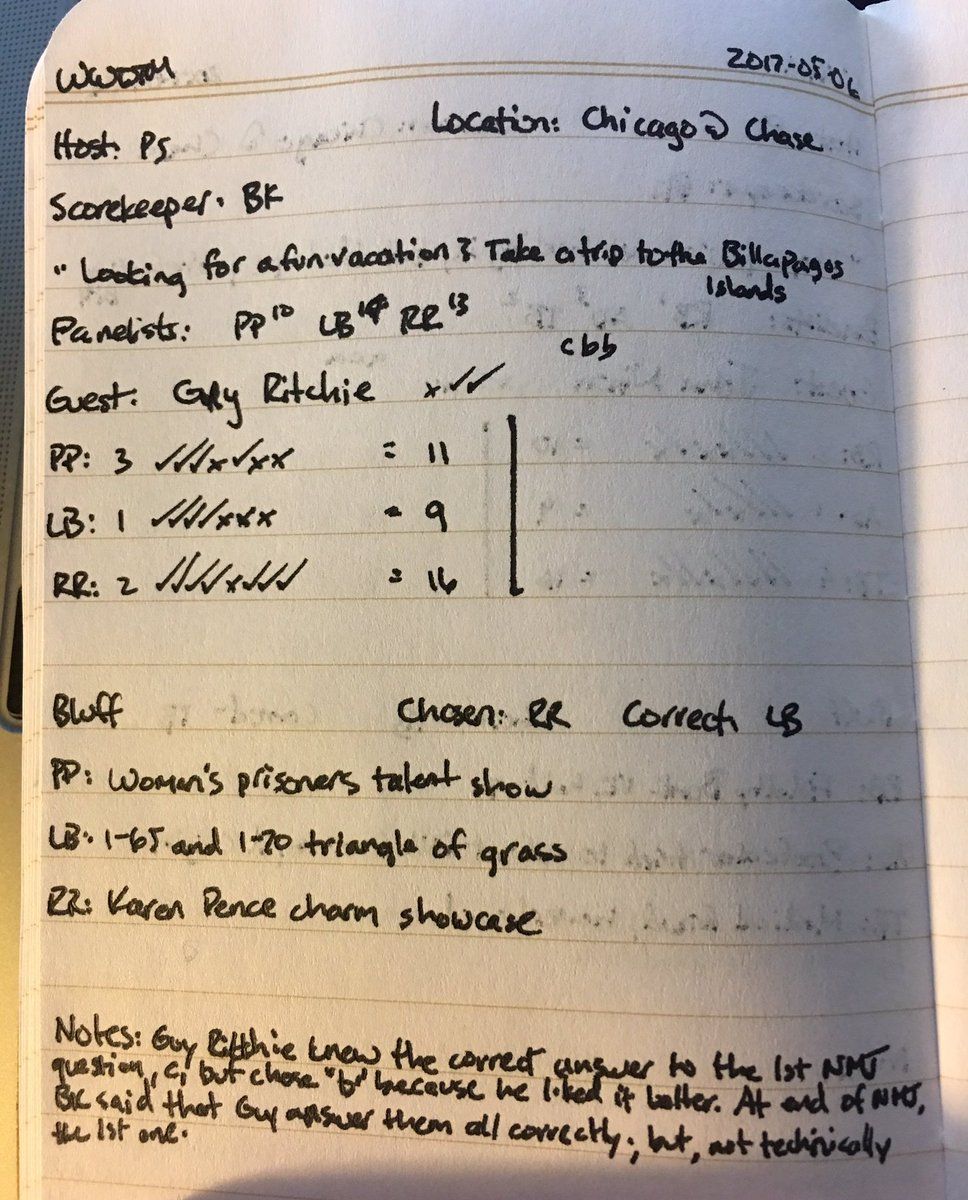 WWDTM 2017-05-06
Location: Chicago @ Chase
Host: PS
Scorekeeper: BK
"Looking for a fun vacation? Take a trip to the Billapagos
Islands
Panelists: PP¹⁰ LB RR¹³
cbb
Guest: Guy Ritchie x✓✓
PP: 3 ✓✓✓x✓xx = 11
LB: 1 ✓✓✓✓xxx = 9
RR: 2 ✓✓✓✓x✓✓✓ = 16
Bluff Chosen: RR Correct: LB
PP: Women's prisoners talent show
LB: I-65 and I-70 triangle of grass
RR: Karen Pence charm showcase
Notes: Guy Ritchie knew the correct answer to the 1st NMJ
question, c, but chose "b" because he liked it better. At end of NMJ,
BK said that Guy answer them all correctly; but, not technically
the 1st one.